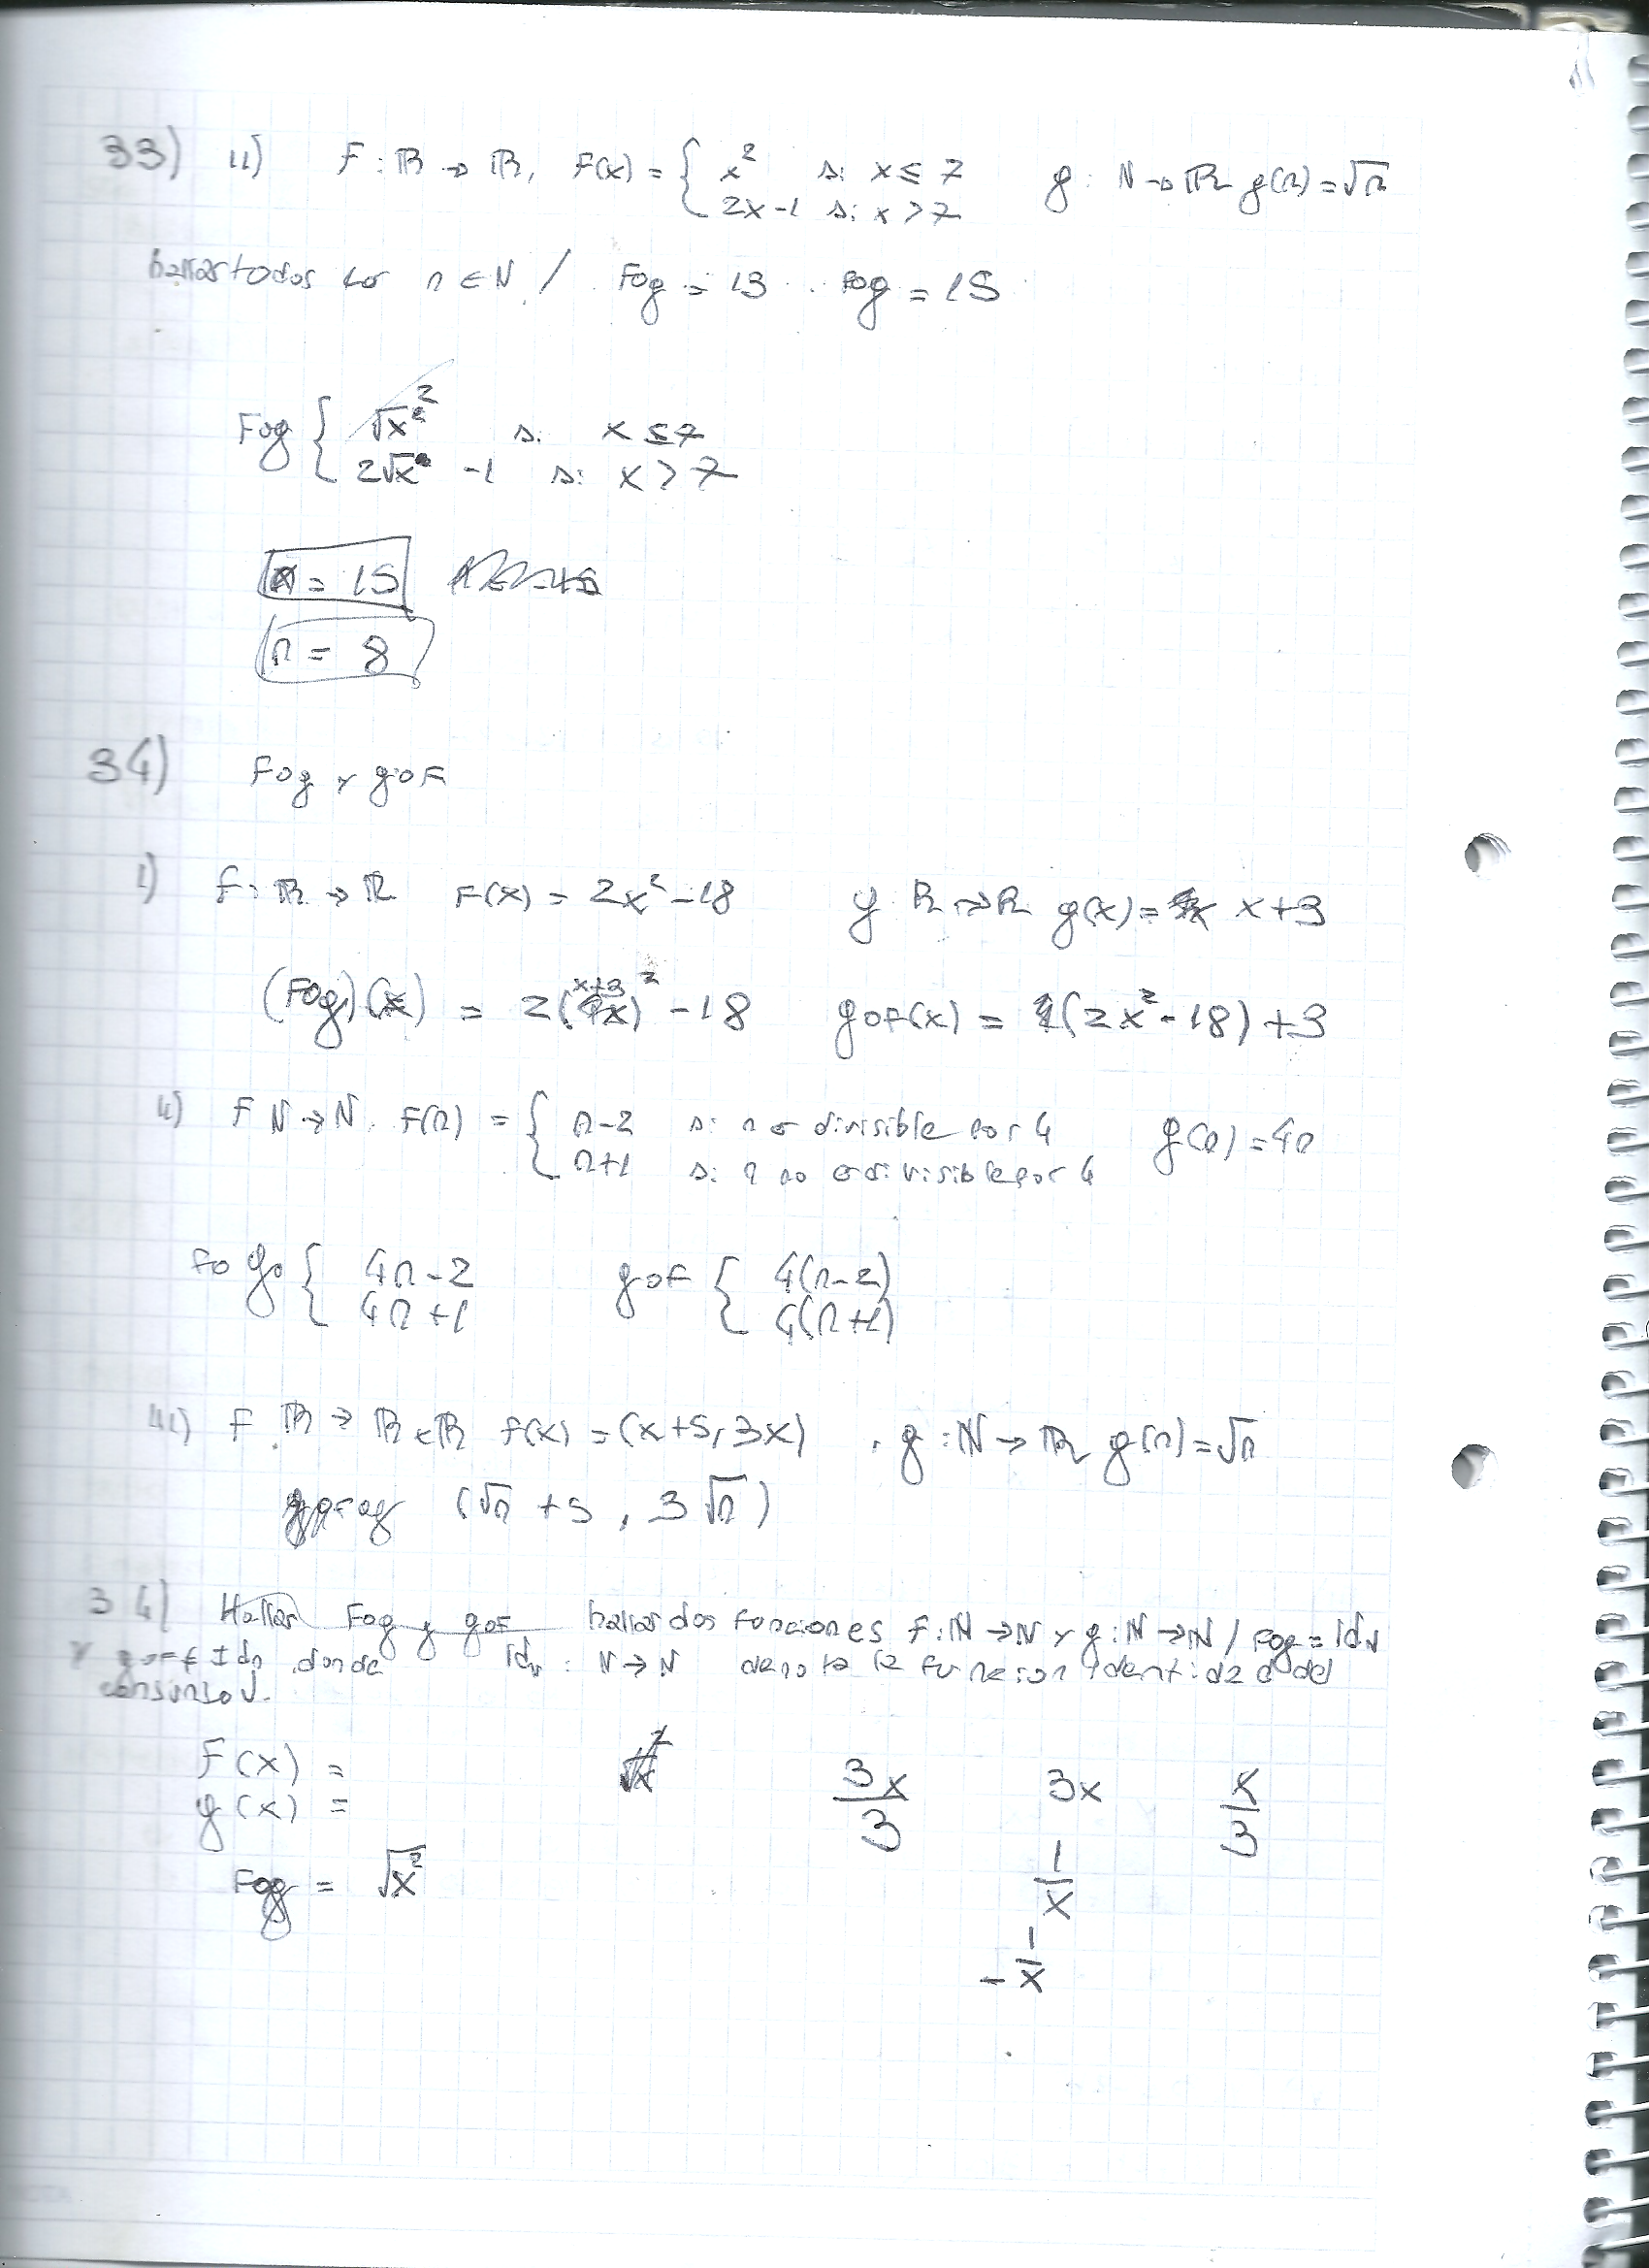 33) ii) F : ℝ → ℝ, F(x) = { x² si x ≤ 7 g : N → ℝ g(n) = √n
2x-1 si x > 7
hallar todos los n ∈ N / Fog = 13 . . Fog = 15
Fog { √x² si x ≤ 7
2√x - 1 si x > 7
= 15
n = 8
34) Fog y goF
i) f : ℝ → ℝ F(x) = 2x² - 18 g ℝ → ℝ g(x) = x+3
(Fog)(x) = 2(x+3)² - 18 goF(x) = (2x² - 18) + 3
ii) F N → N, F(n) = { n-2 si n es divisible por 4 g(n) = 4n
n+1 si n no es divisible por 4
Fog { 4n - 2 goF { 4(n-2)
4n + 1 4(n+1)
iii) F ℝ → ℝ×ℝ f(x) = (x+5, 3x) , g : N → ℝ g(n) = √n
Fog (√n + 5 , 3√n)
34) Hallar Fog y goF hallar dos funciones f : N → N y g : N → N / Fog = Id_N
y goF ≠ Idn donde Id_N : N → N denota la funcion identidad del
conjunto N.
F(x) = 3x/3 3x x/3
g(x) =
Fog = √x² 1/x
- 1/x